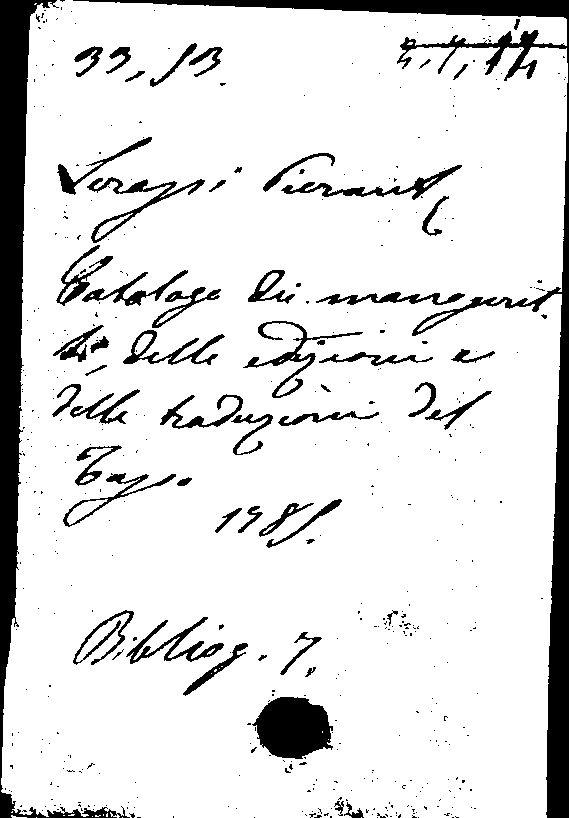 Serassi Pierant
Catalogo dei manoscrit
ti, delle edizioni e
delle traduzioni del
Tasso
1785.
Bibliog. 7.